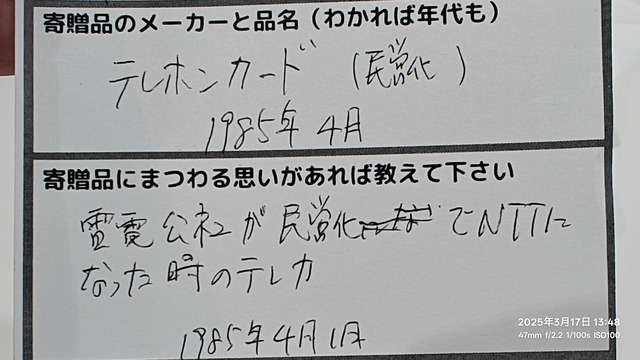 寄贈品のメーカーと品名（わかれば年代も）
テレホンカード （民営化）
1985年 4月
寄贈品にまつわる思いがあれば教えて下さい
電電公社が民営化 でNTTに
なった時のテレカ
1985年4月1日
2025年3月17日 13:48
47mm f/2.2 1/100s ISO100